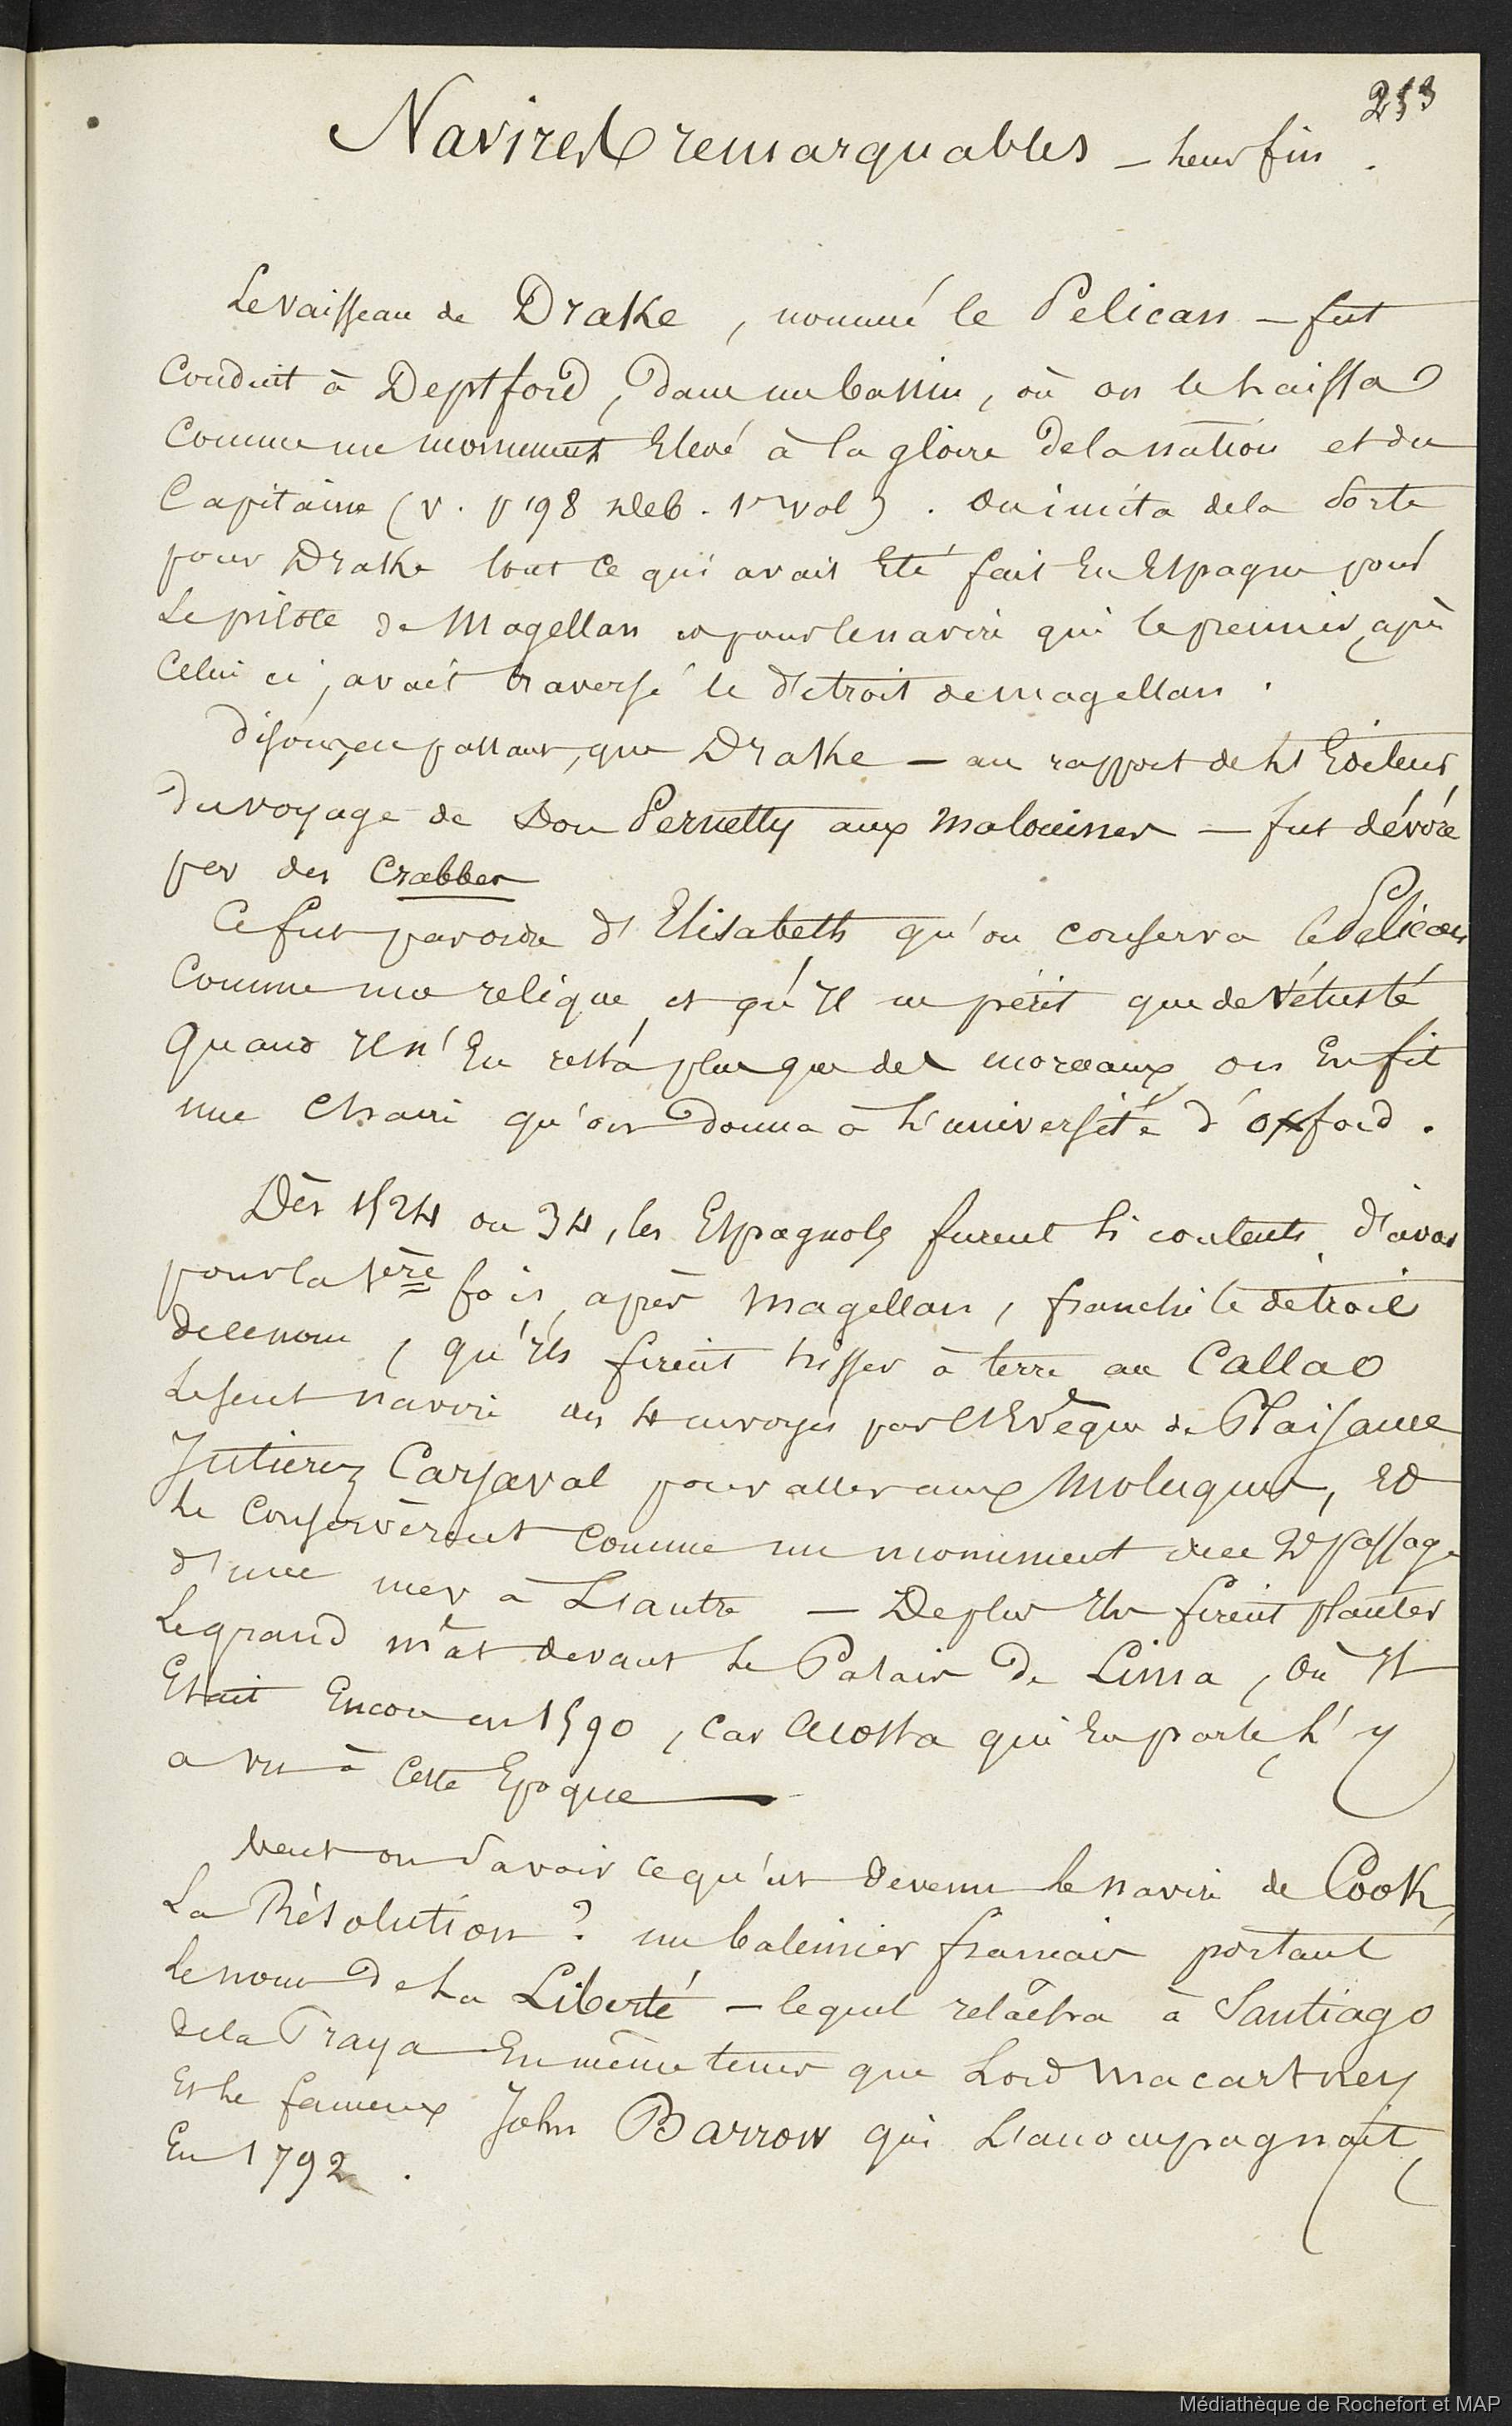 253
Navires remarquables — leur fin.
Le vaisseau de Drake, nommé le Pelican — fut
conduit à Deptford, dans un bassin, où on le laissa
comme un monument élevé à la gloire de la nation et du
Capitaine (v. p 198 Deb. 1er vol). On imita de la sorte
pour Drake tout ce qui avait été fait en Espagne pour
le pilote de Magellan et pour le navire qui le premier, après
celui ci, avait traversé le détroit de magellan.
Disons, en passant, que Drake — au rapport de l'Editeur
du voyage de Dom Pernetty aux Malouines — fut dévoré
par des Crabbes
Ce fut par ordre d'Elisabeth qu'on conserva le Pelican
comme une relique et qu'il ne périt que de vétusté
Quand il n'en resta plus que des morceaux, on en fit
une Chaire qu'on donna à l'université d'Oxford.
Dès 1524 ou 34, les Espagnols furent si contents d'avoir
pour la 1ère fois, après Magellan, franchi le détroit
de ce nom, qu'ils firent hisser à terre au Callao
le seul navire des 4 envoyés par l'Evêque de Plaisance
Jutierez Carjaval pour aller aux Moluques, et
le conservèrent comme un monument du 2d passage
d'une mer à l'autre — De plus ils firent planter
le grand mât devant le Palais de Lima, où il
était encore en 1590, car Acosta qui en parle, l'y
a vu à cette époque
Veut on savoir ce qu'est devenu le navire de Cook,
La Résolution ? un baleinier français portant
le nom de La Liberté — lequel relâcha à Santiago
de la Praya en même tems que Lord Macartney
et le fameux John Barrow qui l'accompagnait,
en 1792.
Médiathèque de Rochefort et MAP